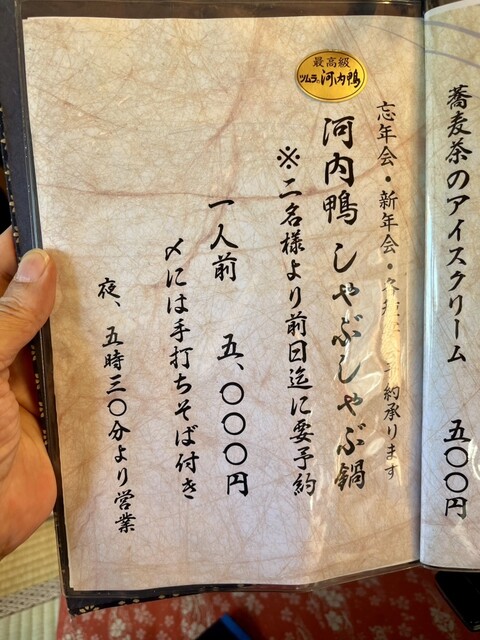 蕎麦茶のアイスクリーム 五〇〇円
最高級
ツムラの河内鴨
忘年会・新年会・
予約承ります
河内鴨 しゃぶしゃぶ鍋
※二名様より前日迄に要予約
一人前 五、〇〇〇円
〆には手打ちそば付き
夜、五時三〇分より営業